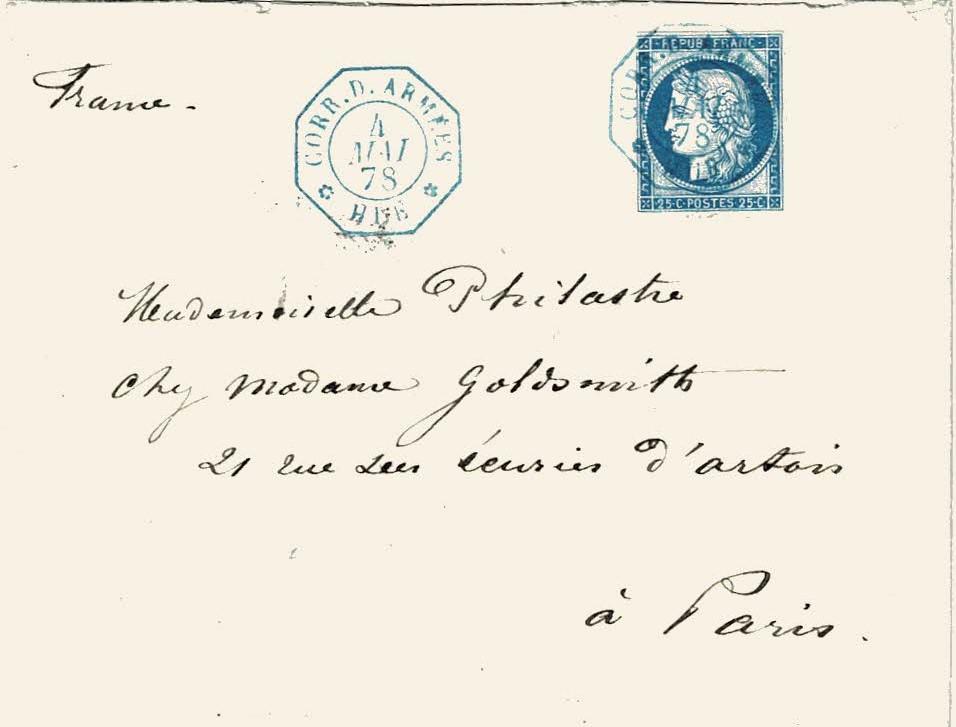 France -
CORR. D. ARMÉES
4
MAI
78
HUE
REPUB FRANC
CORR. D. ARM
MAI
78
25·C·POSTES 25·C
Mademoiselle Philastre
chez Madame Goldsmith
21 rue des écuries d'artois
à Paris.